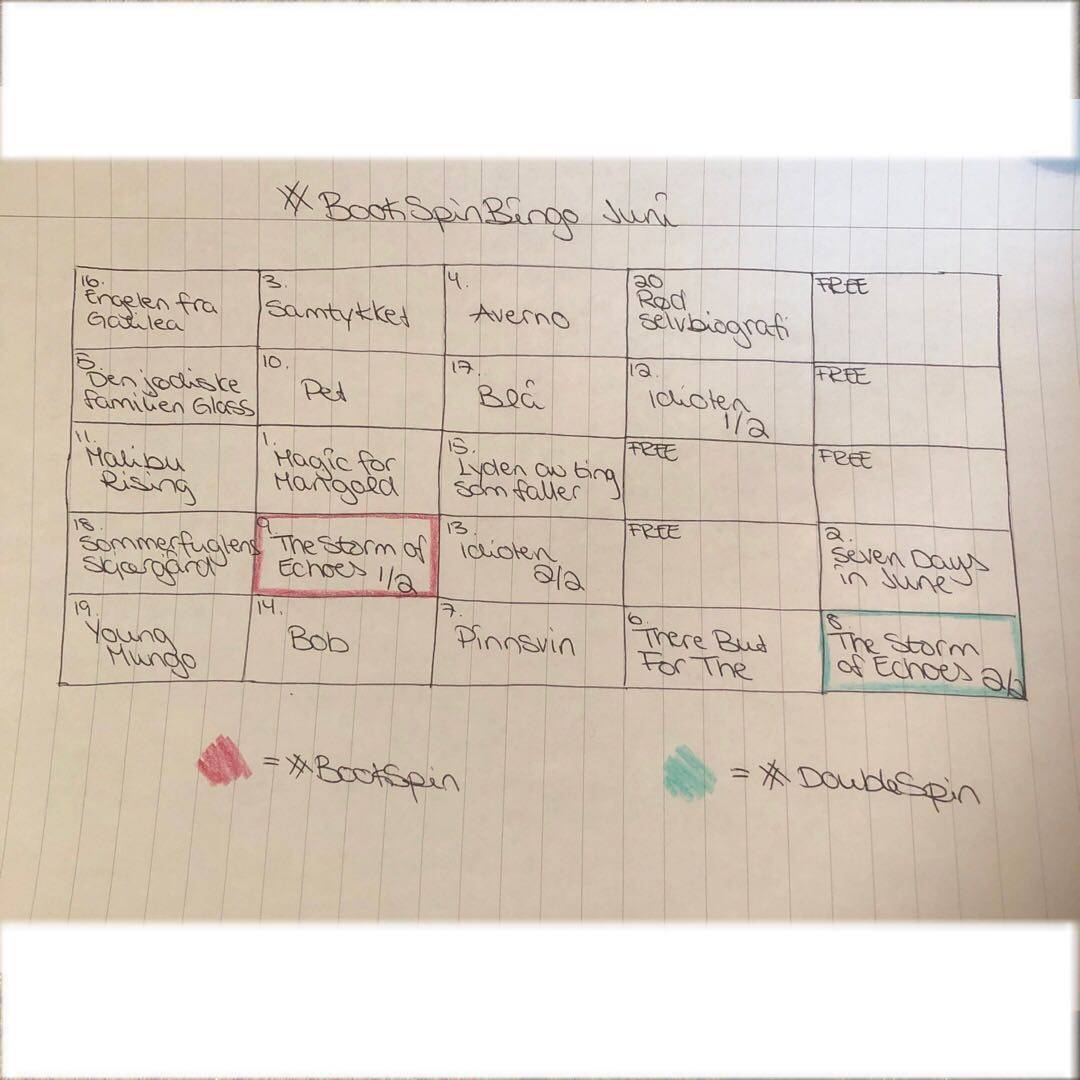 #BookSpinBingo Juni
16.
Engelen fra
Galilea
3.
Samtykket
4.
Averno
20
Rød
selvbiografi
FREE
5.
Den jødiske
familien Glass
10.
Pet
17.
Blå
12.
Idioten
1/2
FREE
11.
Malibu
Rising
1.
Magic for
Marigold
15.
Lyden av ting
som faller
FREE
FREE
18.
Sommerfuglens
skjærgård
9
The Storm of
Echoes 1/2
13.
Idioten
2/2
FREE
2.
Seven Days
in June
19.
Young
Mungo
14.
Bob
7.
Pinnsvin
6.
There But
For The
8.
The Storm
of Echoes 2/2
= #BookSpin
= #DoubleSpin